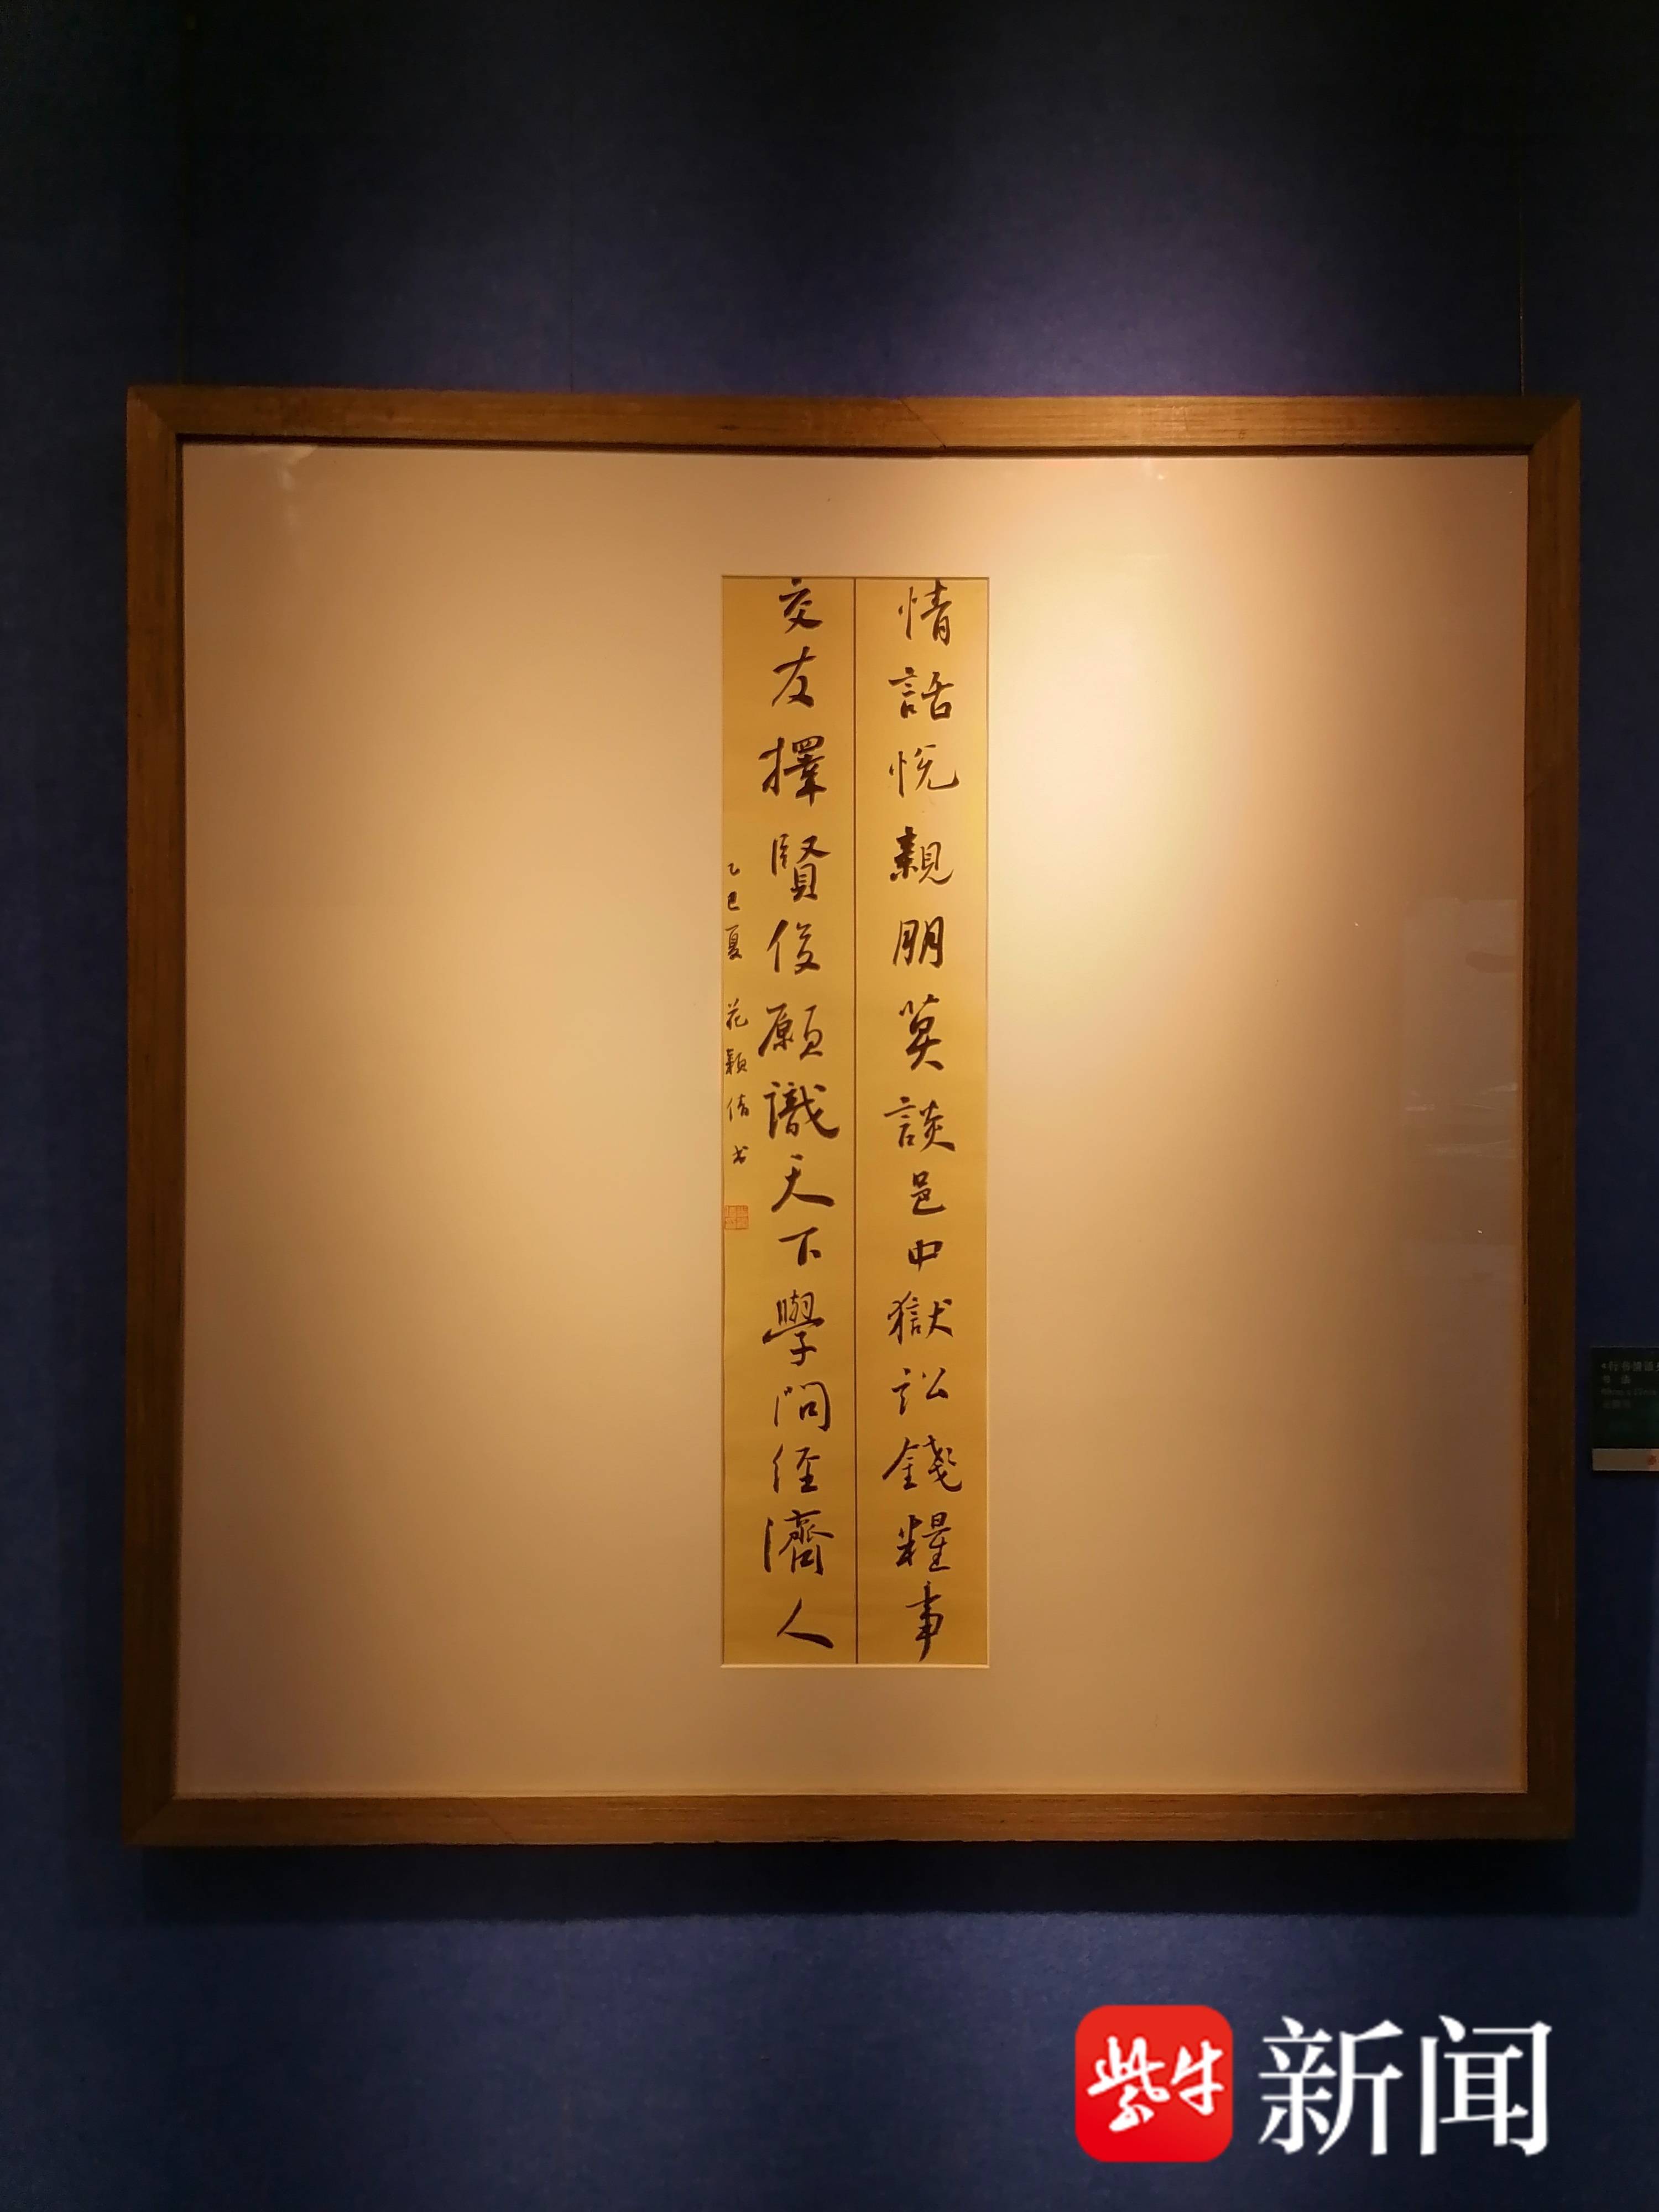 情話悅親朋莫談邑中獄訟錢糧事
交友擇賢俊願識天下學問經濟人
乙巳夏 花穎倩书
紫牛新闻